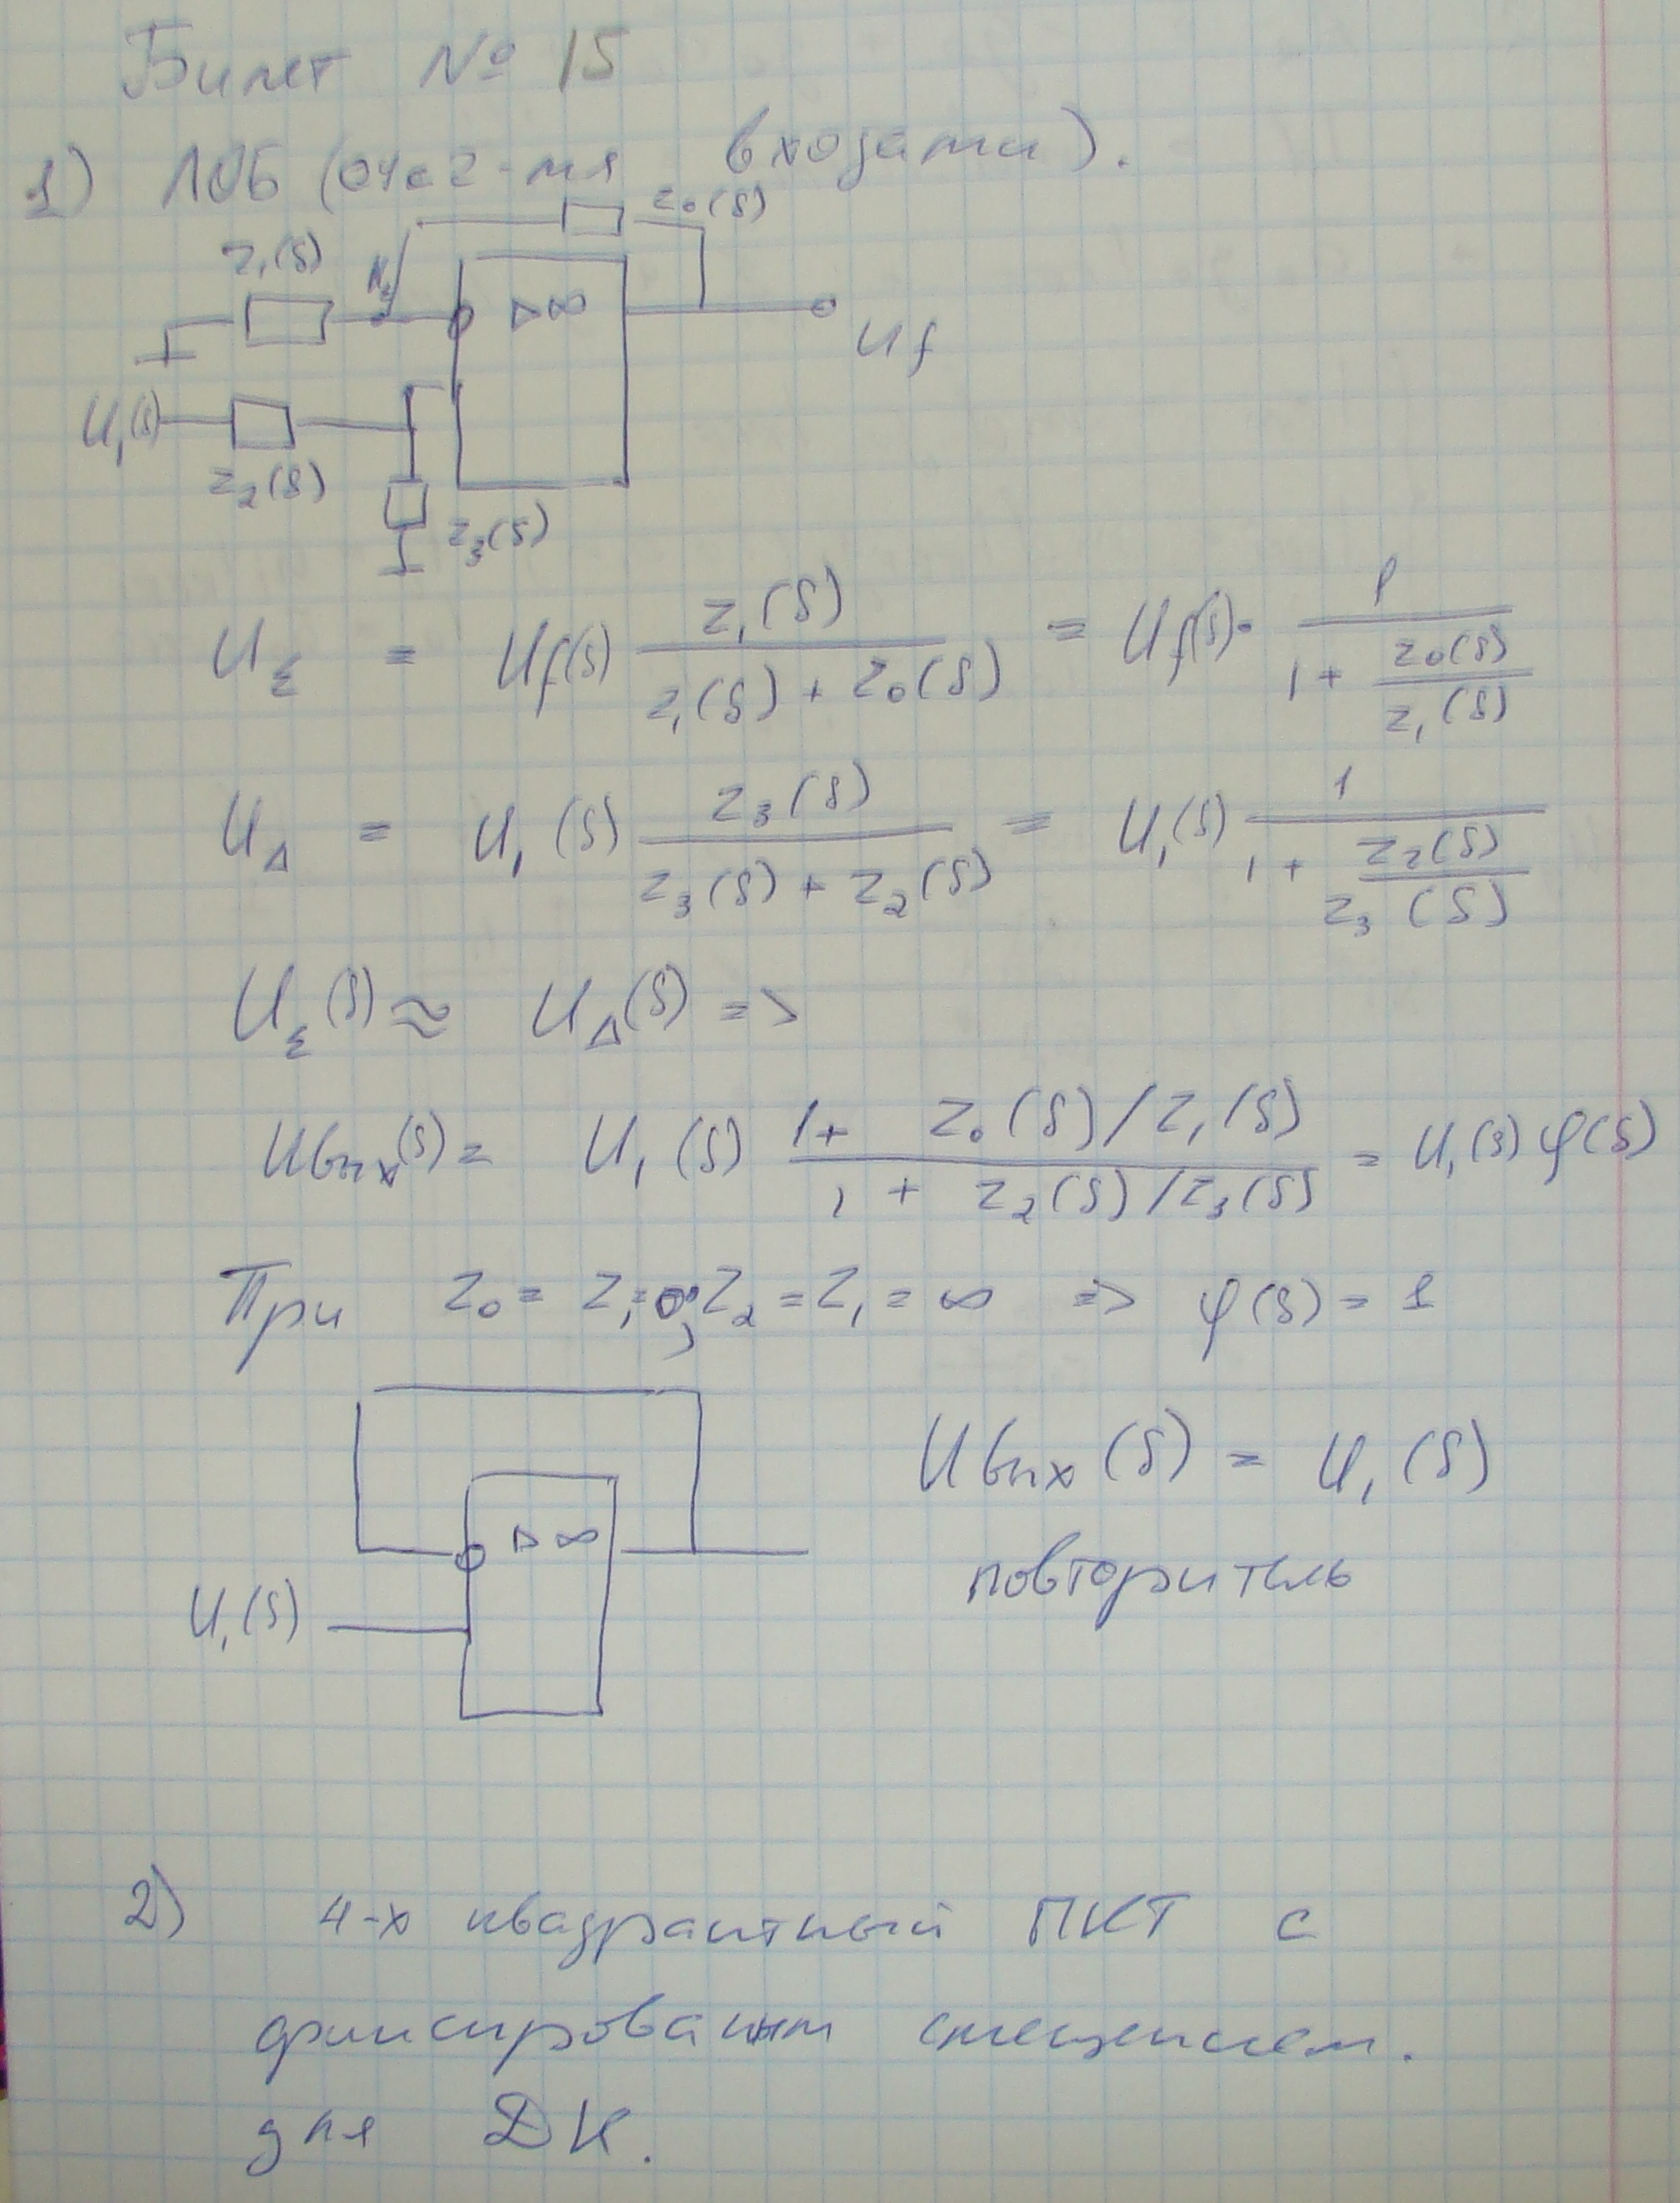 Билет № 15
1) ЛОБ (ОУ с 2-мя входами).
Z₀(S)
Z₁(S)
▷∞
Uf
U₁(S)
Z₂(S)
Z₃(S)
U_Σ = Uf(S) Z₁(S) / (Z₁(S) + Z₀(S)) = Uf(S) · 1 / (1 + Z₀(S)/Z₁(S))
U_Δ = U₁(S) Z₃(S) / (Z₃(S) + Z₂(S)) = U₁(S) 1 / (1 + Z₂(S)/Z₃(S))
U_Σ(S) ≈ U_Δ(S) =>
Uвых(S) = U₁(S) (1 + Z₀(S)/Z₁(S)) / (1 + Z₂(S)/Z₃(S)) = U₁(S) φ(S)
При Z₀ = Z₁ = 0; Z₂ = Z₁ = ∞ => φ(S) = 1
Uвых(S) = U₁(S)
▷∞
повторитель
U₁(S)
2) 4-х квадрантный ПКТ с
фиксированым смещением.
для ДК.